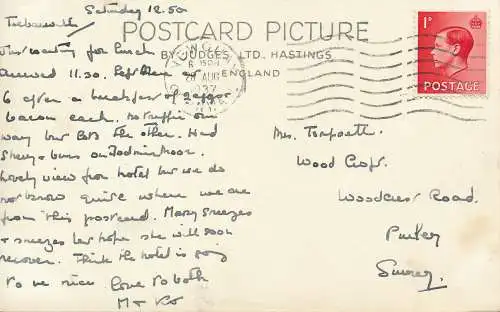 Saturday 12.50
POSTCARD PICTURE
BY JUDGES LTD. HASTINGS
ENGLAND
28 AUG
1D
POSTAGE
Just waiting for lunch
arrived 11.30. Left at
6 after a breakfast of 2 eggs
bacon each. No traffic our
way but lots the other. Had
Sherry & buns on Bodmin Moor.
Lovely view from hotel but we do
not know quite where we are
from this postcard. Mary sneezes
& sneezes but hope she will soon
recover. Think the hotel is going
to be nice love to both
M &
Mrs.
Wood Croft.
Woodcrest Road.
Purley
Surrey